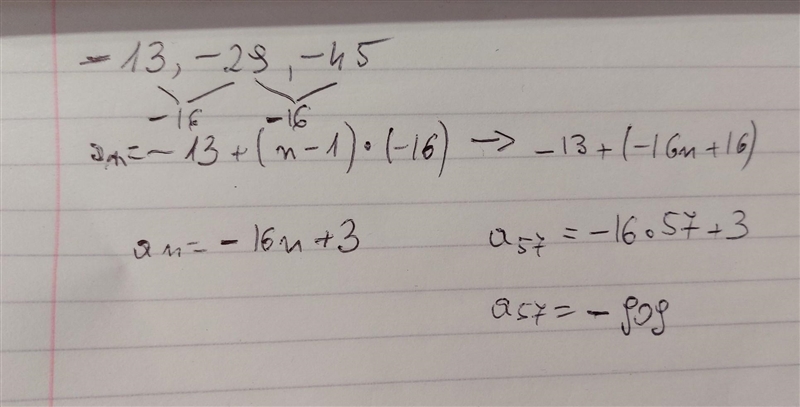 -13, -29, -45
-16 -16
an = -13 + (n - 1) • (-16) → -13 + (-16n + 16)
an = -16n + 3
a57 = -16•57 + 3
a57 = -909